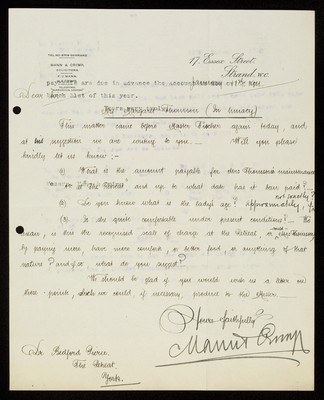 MANN & CRIMP
SOLICITORS
17, Essex Street,
Strand, W.C.
payments are due in advance the amount
31st of this year.
Yours very truly,
Dear Sir
(In lunacy)
This matter came before Master Fischer again today, and
at his suggestion we are writing to you. Will you please
kindly let us know:-
(1) What is the amount payable for Mrs Thomson's maintenance
at the Retreat, and up to what date has it been paid?
not exactly?
(2) Do you know what is the lady's age? Approximately, if
(3) Is she quite comfortable under present conditions? — We
mean, is this the recognised scale of charge at the Retreat, or could Mrs Thomson,
by paying more have more comfort, or better food or anything of that
nature? and if so, what do you suggest?
We should be glad if you would write us a letter on
these points, which we could, if necessary, produce to the Master.
Yours faithfully
Mann & Crimp
Dr Bedford Pierce,
The Retreat,
York.